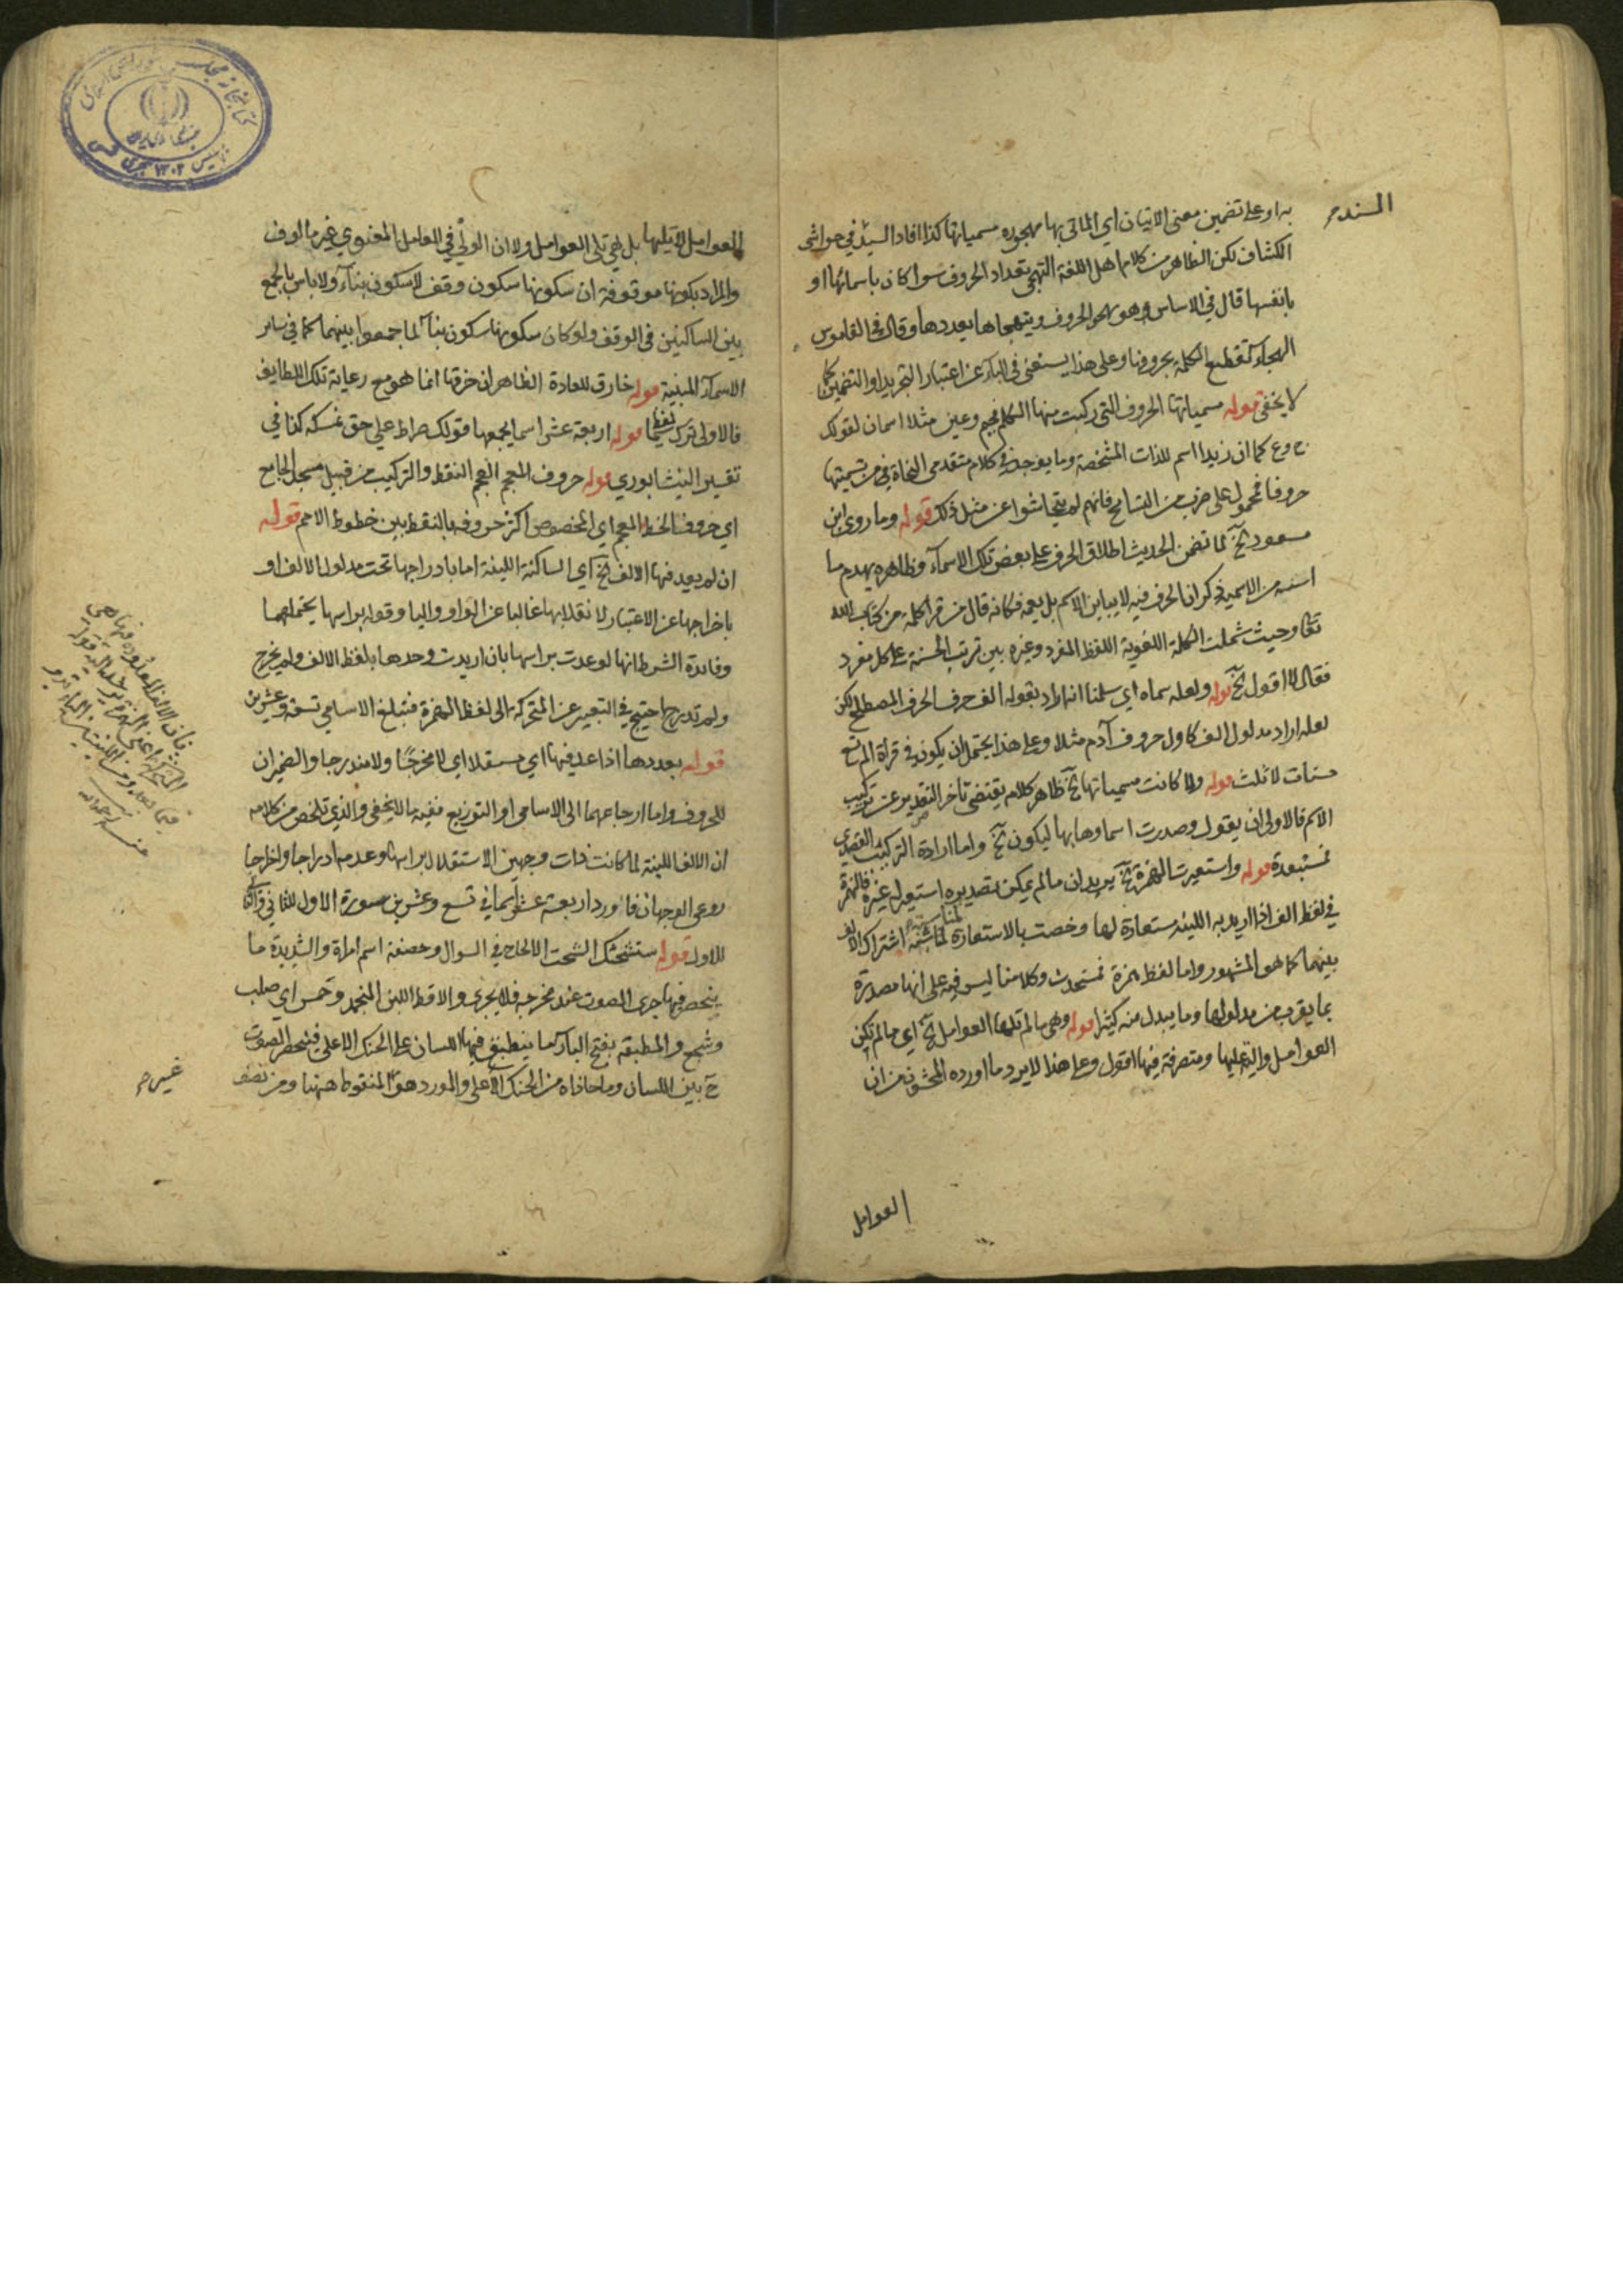 به او على تضمين معنى الاتيان اي الماتى بها مهجوره مسمياتها كذا افاد السيد في حواشى
الكشاف لكن الظاهر من كلام اهل اللغة التهجى تعداد الحروف سوا كان باسمائها او
بانفسها قال في الاساس وهو يهجو الحروف ويتهجاها يعددها وقال في القاموس
الهجاء تقطيع الكلمة بحروفها وعلى هذا يستغنى في الباء عن اعتبار التجريد او التضمين كما
لا يخفى قوله مسمياتها الحروف التى ركبت منها الكلم فجيم وعين مثلا اسمان لقولك
ج و ع كما ان زيدا اسم للذات المشخصة وما يوجد في كلام متقدمى النحاة من تسميتها
حروفا محمول على ضرب من التسامح فانهم لم يتحاشوا عن مثل ذلك قوله وما روى ابن
مسعود الخ لما تضمن الحديث اطلاق الحرف على بعض تلك الاسماء وظاهره يهدم ما
اسسه من الاسمية ذكر ان الحرف فيه لا يباين الاسم بل يعمه فكانه قال من قرا كلمة من كتاب الله
تعا وحيث شملت الكلمة اللغوية اللفظ المفرد وغيره بين ترتب الحسنة على كل مفرد
فقال لا اقول الخ قوله ولعله سماه اي سلمنا انه اراد بقوله الف حرف الحرف المصطلح لكن
لعله اراد مدلول الف كاول حروف آدم مثلا وعلى هذا يحتمل ان يكون في قراة الم تسع
حسنات لا ثلث قوله ولما كانت مسمياتها الخ ظاهر كلامه يقتضى تاخر التصدير عن تركيب
الاسم فالاولى ان يقول وصدرت اسماوها بها ليكون الخ واما ارادة التركيب القصدى
فمستبعدة قوله واستعيرت الهمزة الخ يريد ان ما لم يمكن تصديره استعير له غيره فالهمزة
في لفظ الف اذا اريد به اللينه مستعارة لها وخصت بالاستعارة لمناسبة اشتراك الالف
بينهما كما هو المشهور واما لفظ همزة فمستحدث وكلامنا ليس فيه على انها مصدرة
بما يقرب من مدلولها وما يبدل منه كثيرا قوله وهى ما لم تلها العوامل الخ اي ما لم تكن
العوامل والية عليها ومتصرفة فيها اقول وعلى هذا لا يرد ما اورده المحشون من ان
العوامل
العوامل لا يليها بل هى تلى العوامل ولا ان الولى في العامل المعنوي غير مالوف
والمراد بكونها موقوفة ان سكونها سكون وقف لا سكون بناء ولا باس بالجمع
بين الساكنين في الوقف ولو كان سكونها سكون بناء لما جمعوا بينهما كما في ساير
الاسماء المبنية قوله خارق للعادة الظاهر ان خرقها انما هو مع رعاية تلك اللطايف
فالاولى ترك قوله اربعة عشر اسما يجمعها قولك صراط على حق نمسكه كذا في
تفسير النيشابوري قوله حروف المعجم العجم النقط والتركيب من قبيل مسجد الجامع
اي حروف الخط المعجم اي المخصوص اكثر حروفه بالنقط بين خطوط الامم قوله
ان لم يعد فيها الالف الخ اي الساكنة اللينة اما بادراجها تحت مدلول الالف او
باخراجها عن الاعتبار لانقلابها غالبا عن الواو واليا وقوله براسها يحتملهما
وفائدة الشرط انها لو عدت براسها بان اريدت وحدها بلفظ الالف ولم يخرج
ولم تدرج احتيج في التعبير عن المتحركة الى لفظ الهمزة فتبلغ الاسامي تسعة وعشرين
قوله بعددها اذا عد فيها اي مستقلا اي لا مخرجا ولا مندرجا والضميران
للحروف واما ارجاعهما الى الاسامى او التوزيع ففيه ما لا يخفى والذي تلخص من كلامه
ان الالف اللينة لما كانت ذات وجهين الاستقلال براسها وعدمه ادراجا واخراجا
روعى الوجهان فاورد اربعة عشر اسما في تسع وعشرين سورة الاول للثانى والثانى
للاول قوله ستشحثك الشحث الالحاح في السوال وخصفة اسم امراة والشديدة ما
ينحصر فيها جرى الصوت عند مخرجه فلا يجرى والاقط اللبن المنجمد وحمس اي صلب
وشجع والمطبقة بفتح الباء ما ينطبق فيها اللسان على الحنك الاعلى فينحصر الصوت
ح بين اللسان وما حاذاه من الحنك الاعلى والمورد هو المنقوط ههنا ومن نصف